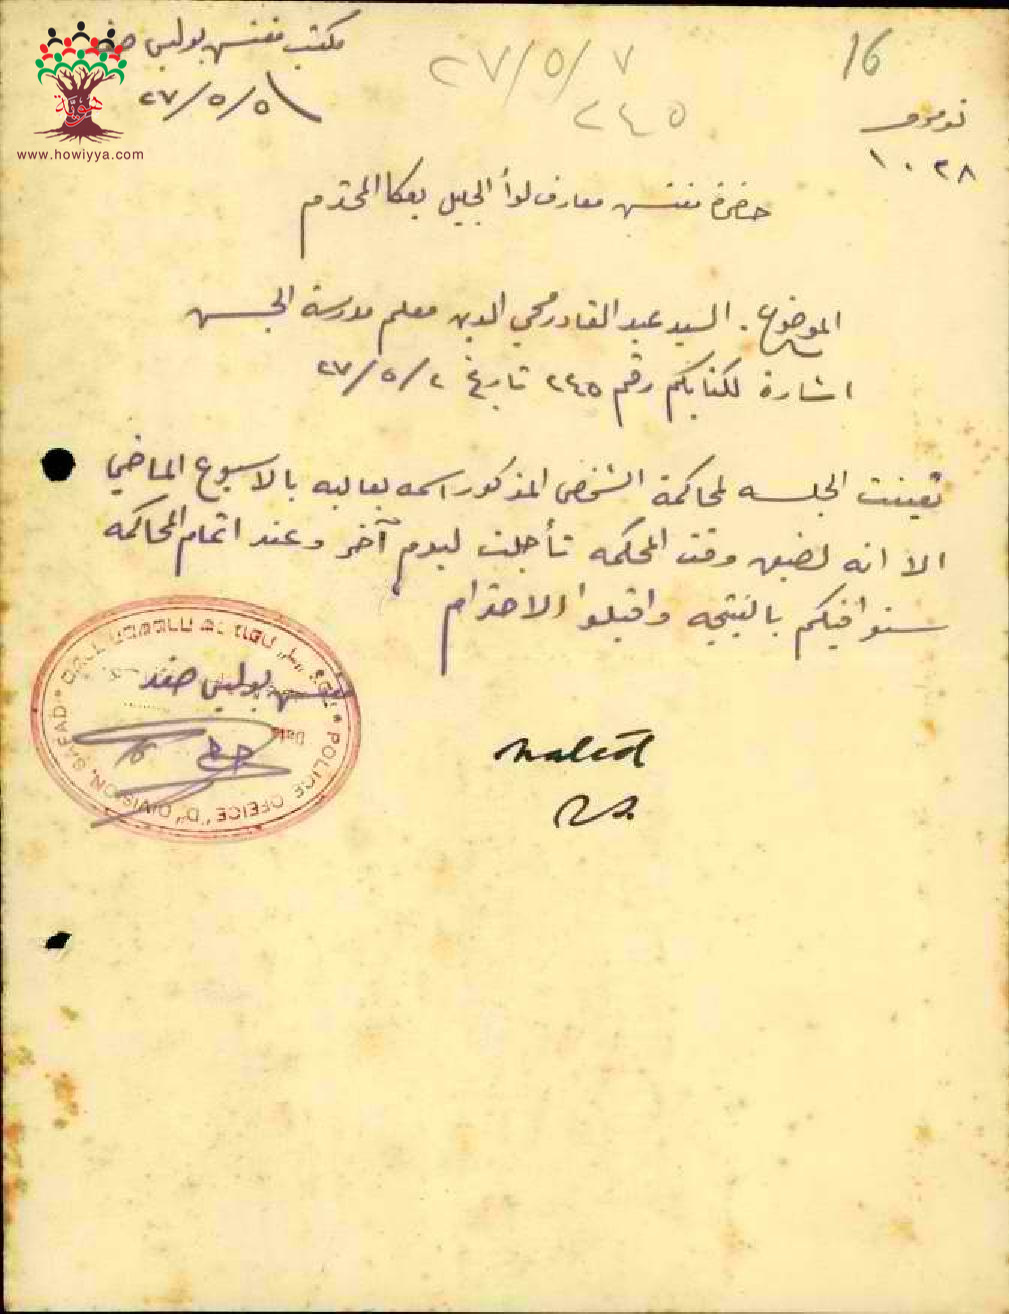 16
٢٧/٥/٧
٢٤٥
مكتب مفتش بوليس صفد
٢٧/٥/٥
نومرو
١٠٢٨
هوية
www.howiyya.com
حضرة مفتش معارف لوأ الجليل بعكا المحترم
الموضوع. السيد عبد القادر محي الدين معلم مدرسة الجش
اشارة لكتابكم رقم ٢٤٥ تاريخ ٢٧/٥/٢
تعينت الجلسه لمحاكمة الشخص المذكور اسمه بعاليه بالاسبوع الماضي
الا انه لضيق وقت المحكمه تأجلت ليوم آخر وعند اتمام المحاكمه
سنوافيكم بالنتيجه واقبلوا الاحترام
مفتش بوليس صفد
Date
POLICE OFFICE "D" DIVISION, SAFAD
noted